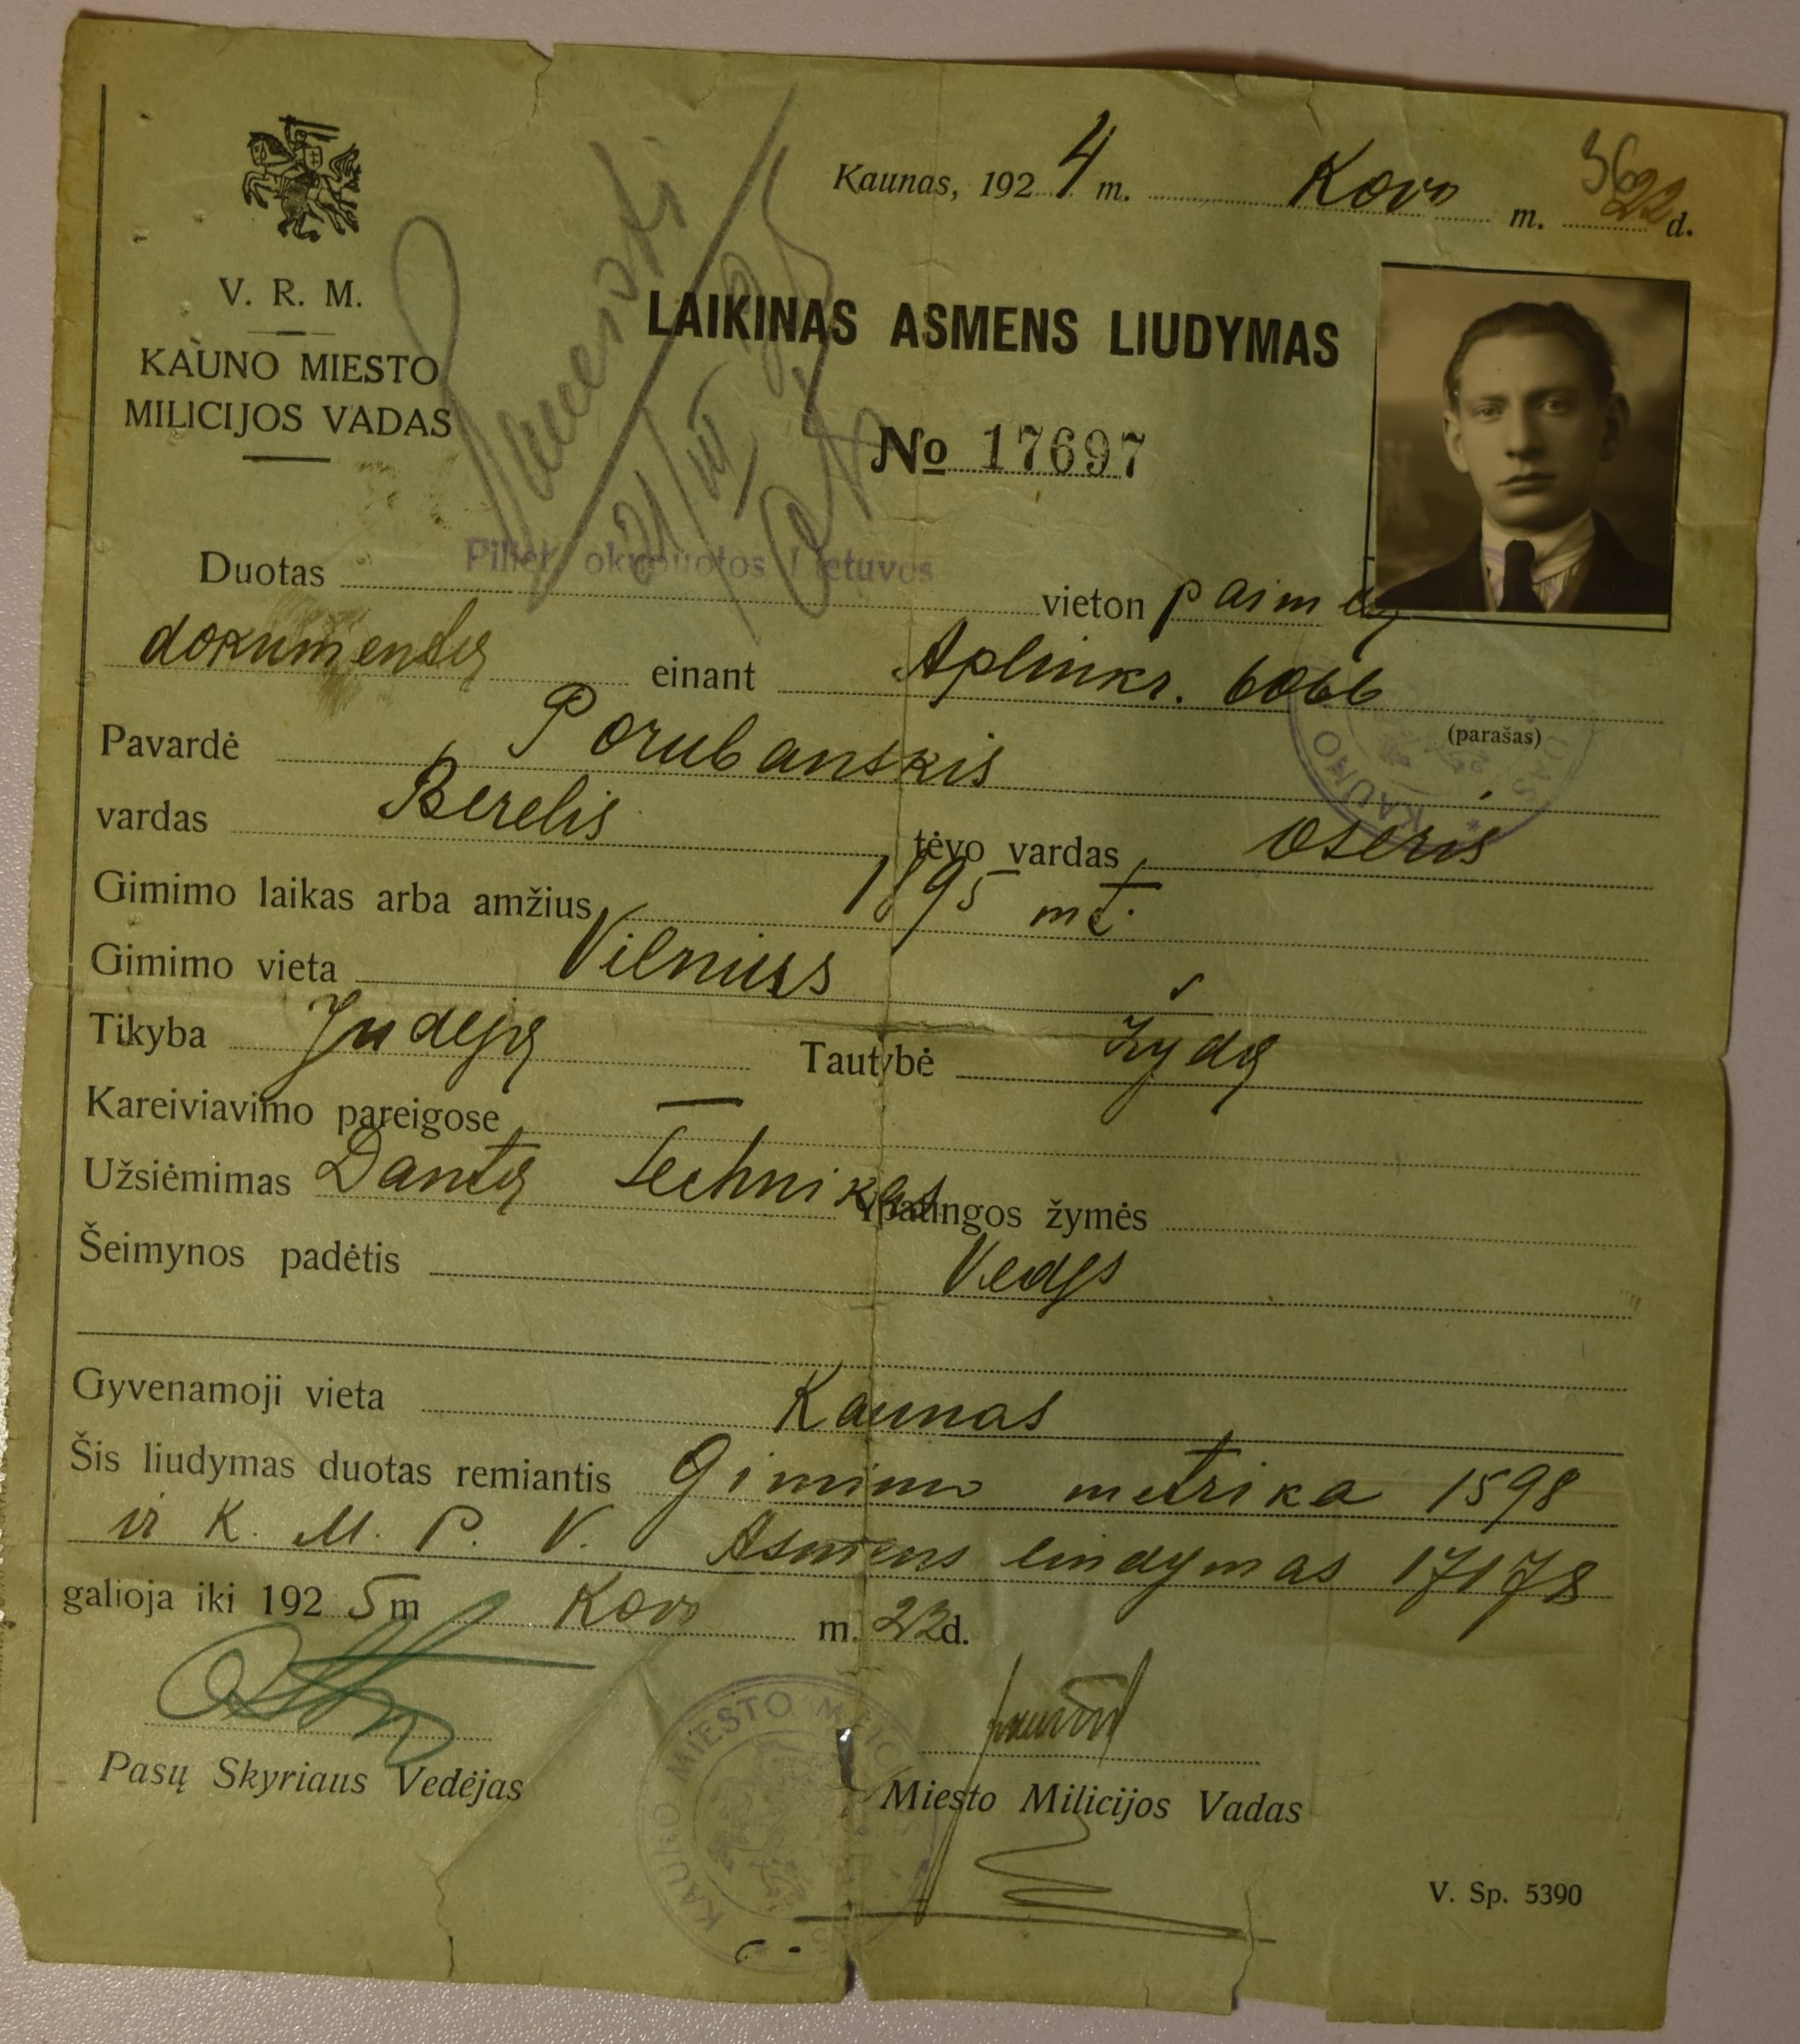 Kaunas, 1924 m. Kovo m. 22 d.
V. R. M.
KAUNO MIESTO
MILICIJOS VADAS
LAIKINAS ASMENS LIUDYMAS
No 17697
21/III 25
Duotas Piliet. okupuotos Lietuvos vieton paimtų
dokumentų einant Aplinkr. 6066
(parašas)
Pavardė Porubanskis
vardas Berelis tėvo vardas Oseris
Gimimo laikas arba amžius 1895 mt.
Gimimo vieta Vilniuss
Tikyba Judėjų Tautybė žydų
Kareiviavimo pareigose —
Užsiėmimas Dantų Technikas Ypatingos žymės
Šeimynos padėtis Vedęs
Gyvenamoji vieta Kaunas
Šis liudymas duotas remiantis Gimimo metrika 1598
ir K. M. P. V. Asmens liudymas 17178
galioja iki 1925 m Kovo m. 22 d.
Pasų Skyriaus Vedėjas
Miesto Milicijos Vadas
KAUNO MIESTO
V. Sp. 5390